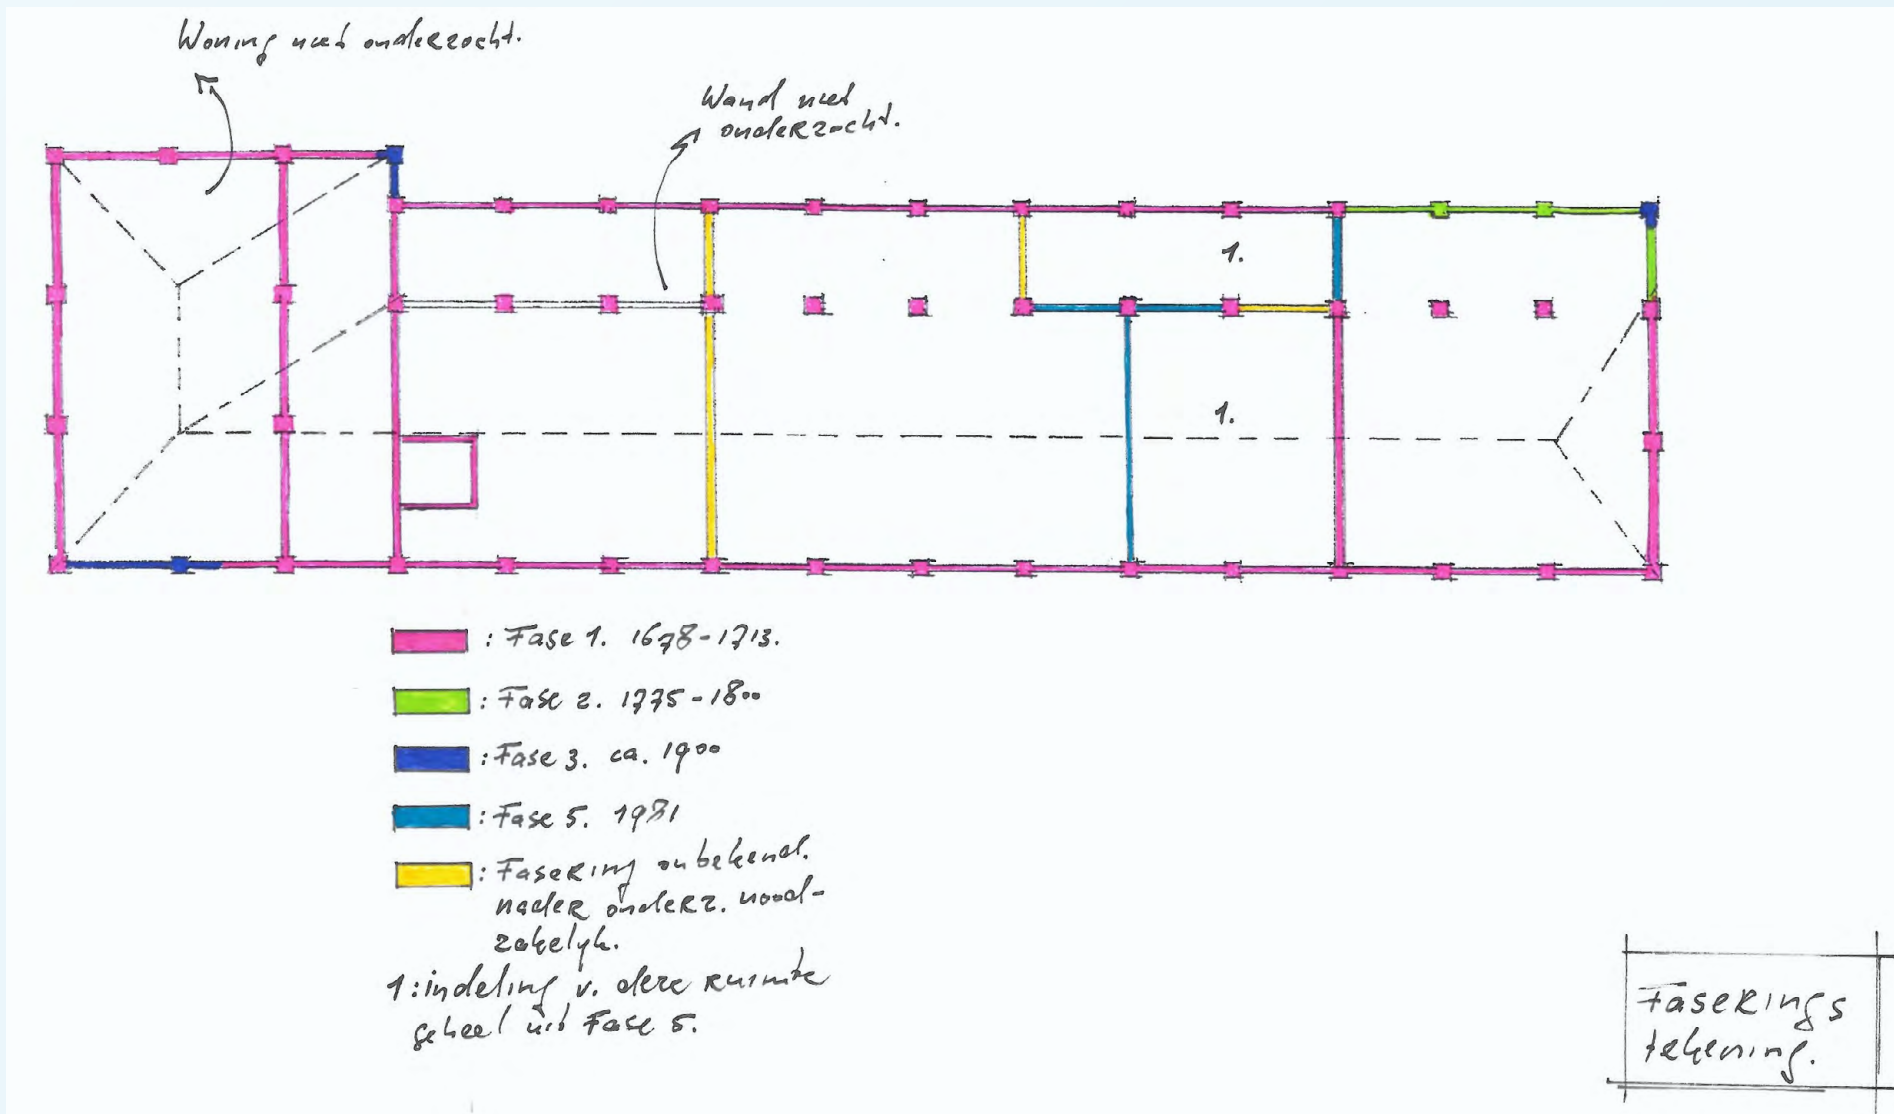 Woning niet onderzocht.
Wand niet
onderzocht.
1.
1.
: Fase 1. 1678-1713.
: Fase 2. 1775-1800
: Fase 3. ca. 1900
: Fase 5. 1981
: Fasering onbekend.
nader onderz. nood-
zakelyk.
1: indeling v. deze ruimte
geheel uit Fase 5.
Faserings
tekening.